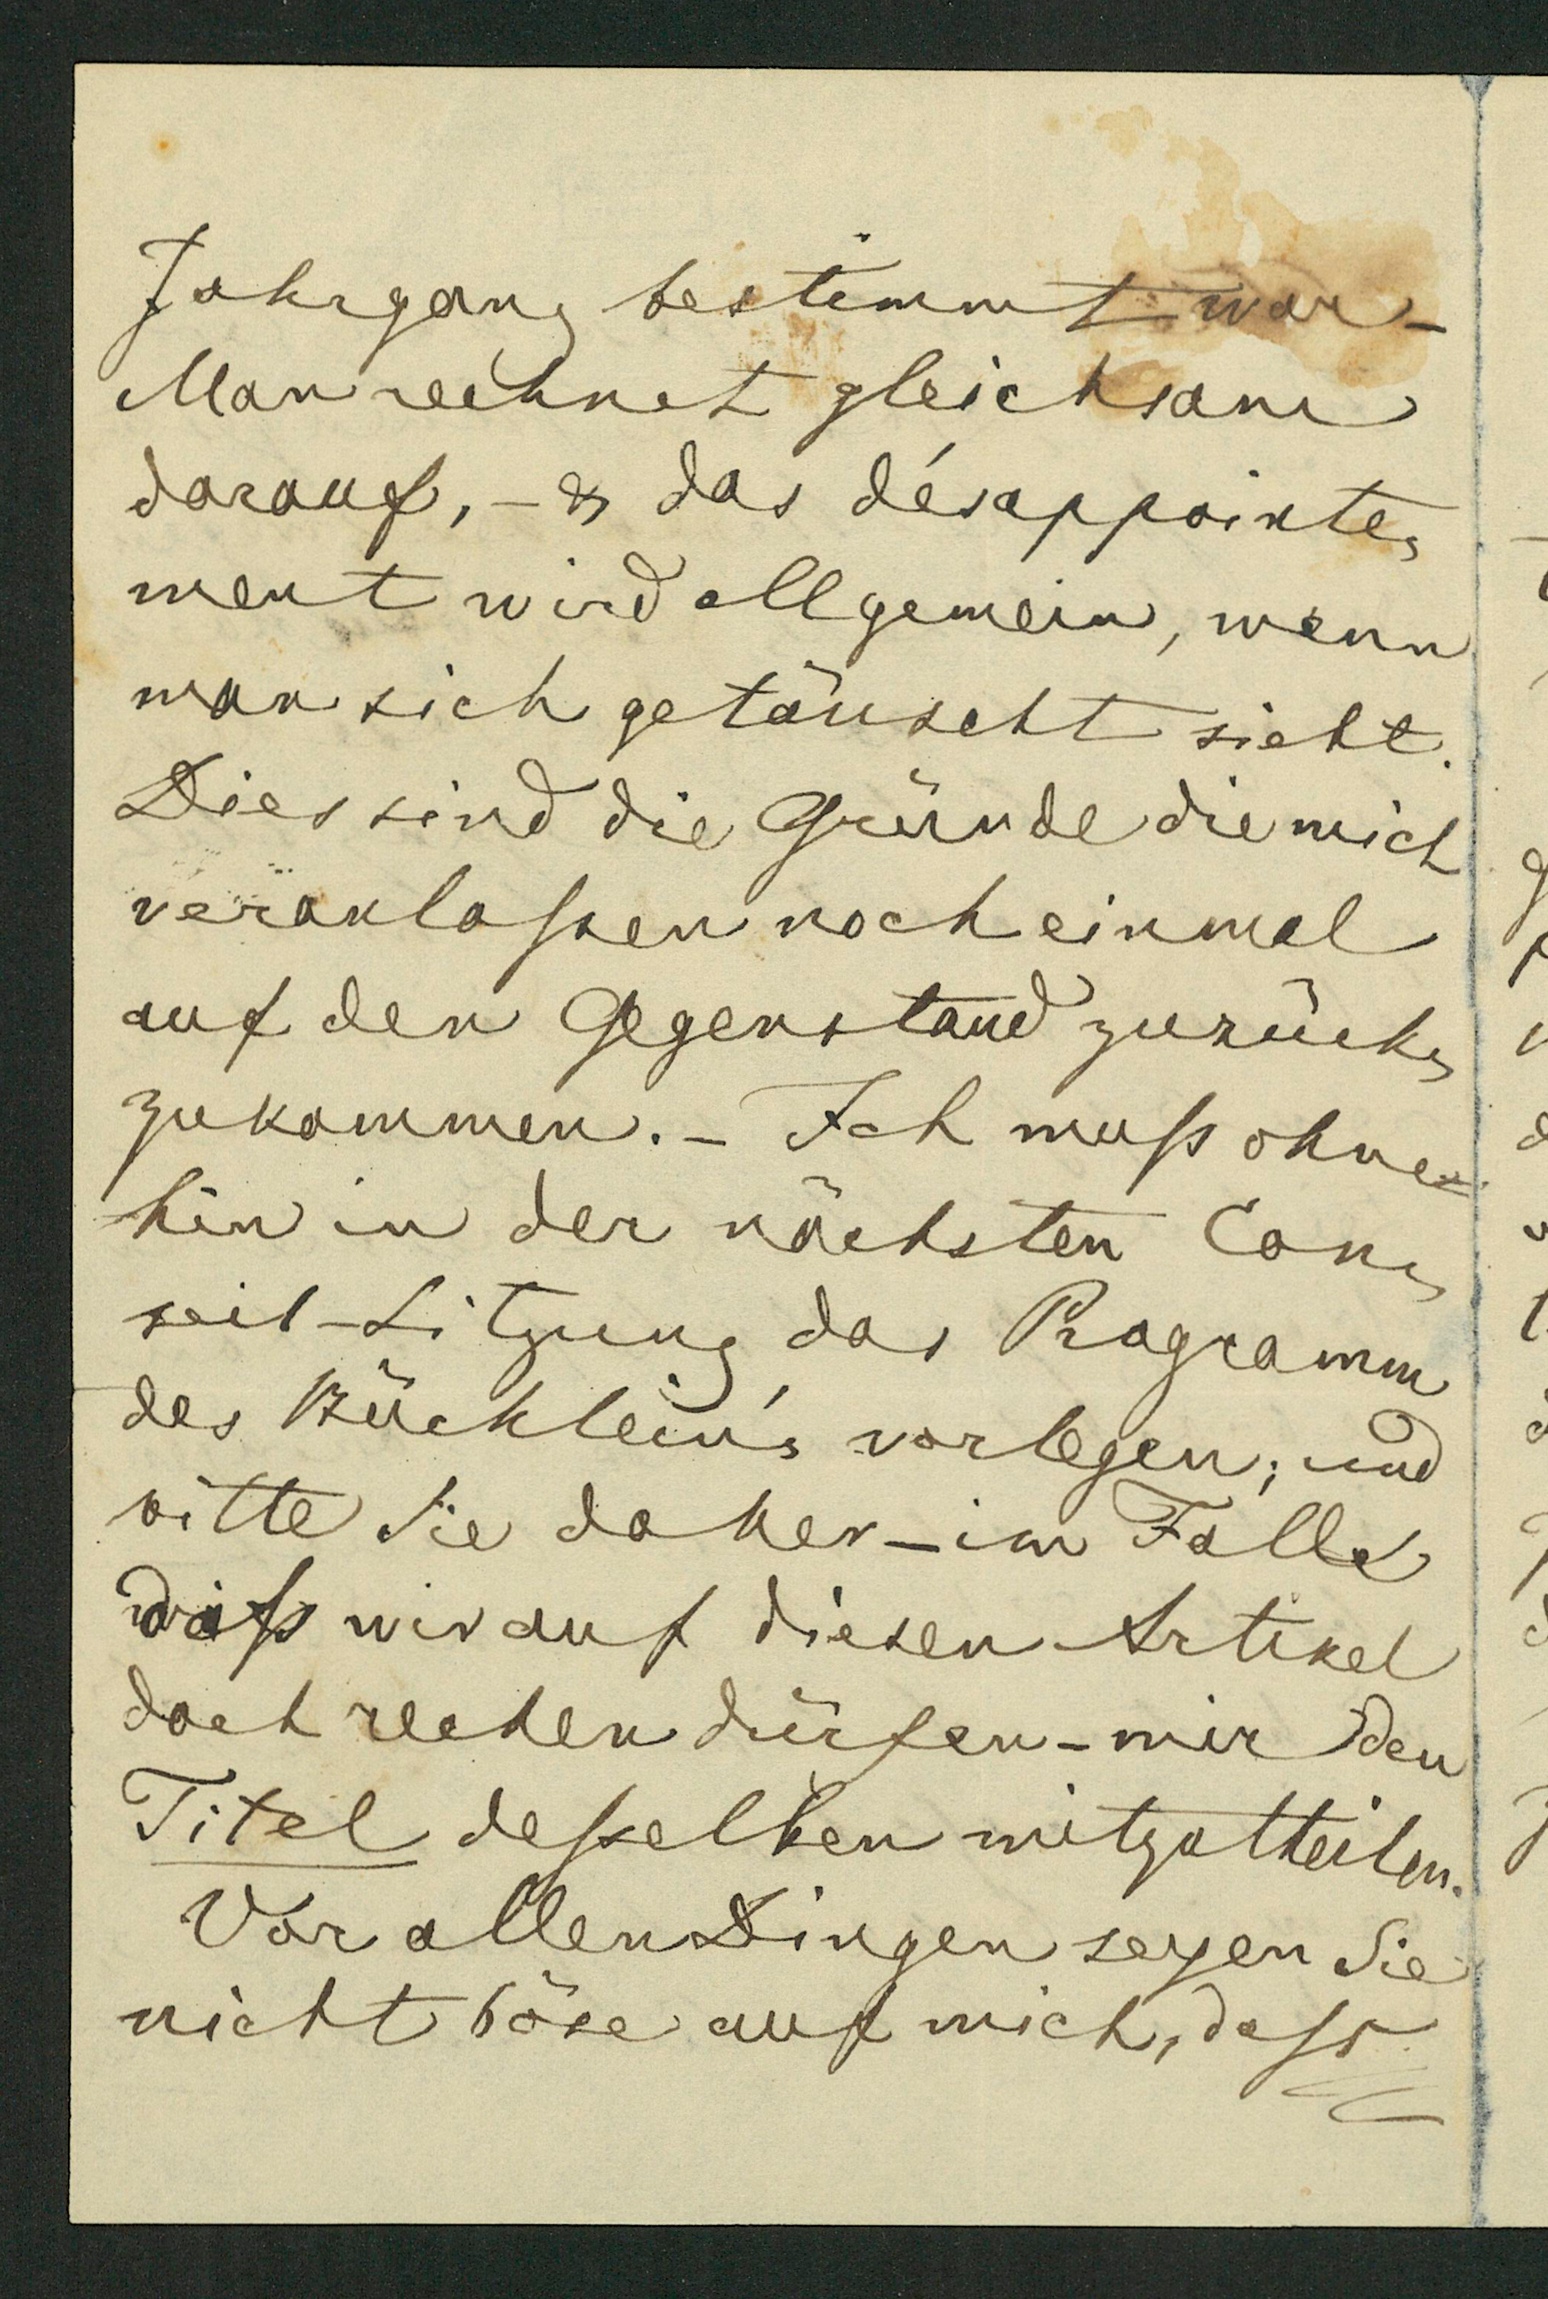 Jahrgang bestimmt war –
Man rechnet gleichsam
darauf, – & das désappointe-
ment wird allgemein, wenn
man sich getäuscht sieht.
Dies sind die Gründe die mich
veranlaßen noch einmal
auf den Gegenstand zurück-
zukommen. – Ich muß ohne=
hin in der nächsten Con-
seil-Sitzung das Programm
des Büchlein's vorlegen; und
bitte Sie daher – im Falle
daß wir auf diesen Artikel
doch rechen dürfen – mir den
Titel deßelben mitzutheilen.
Vor allen Dingen seyen Sie
nicht böse auf mich, daß